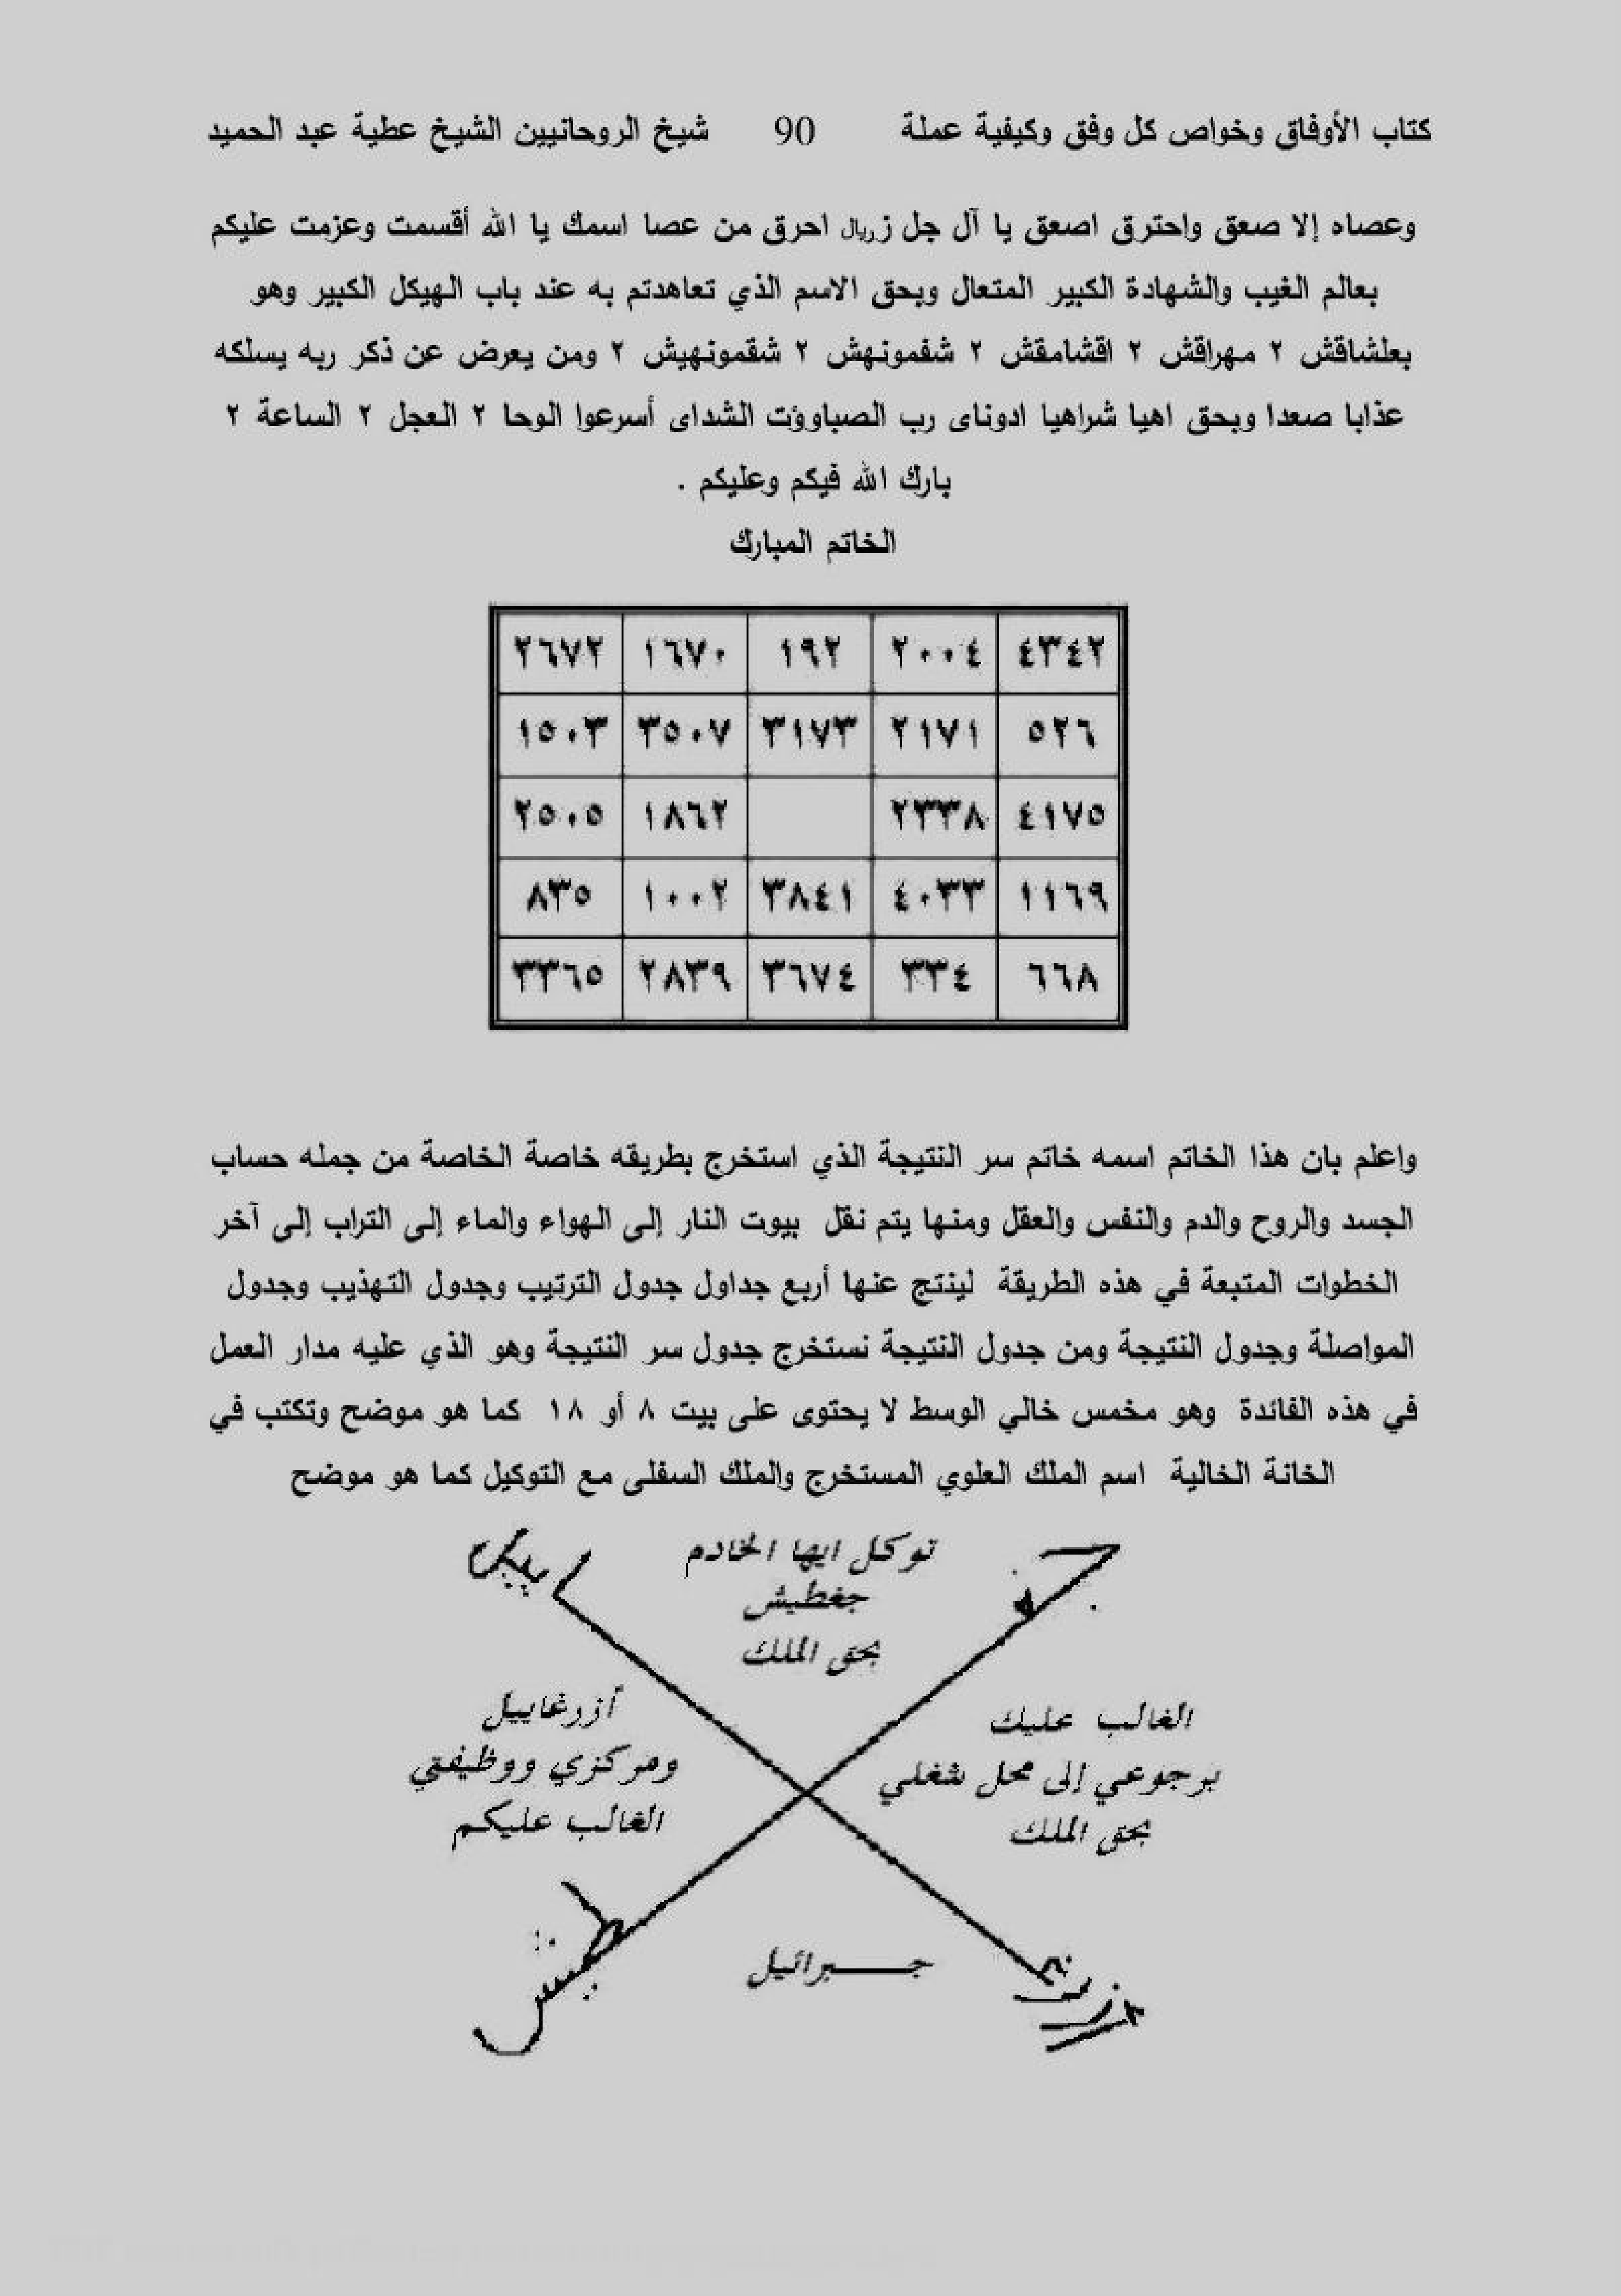 كتاب الأوفاق وخواص كل وفق وكيفية عملة 90 شيخ الروحانيين الشيخ عطية عبد الحميد
وعصاه إلا صعق واحترق اصعق يا آل جل زريال احرق من عصا اسمك يا الله أقسمت وعزمت عليكم
بعالم الغيب والشهادة الكبير المتعال وبحق الاسم الذي تعاهدتم به عند باب الهيكل الكبير وهو
بعلشاقش ٢ مهراقش ٢ اقشامقش ٢ شقمونهش ٢ شقمونهيش ٢ ومن يعرض عن ذكر ربه يسلكه
عذابا صعدا وبحق اهيا شراهيا ادوناى رب الصباوؤت الشداى أسرعوا الوحا ٢ العجل ٢ الساعة ٢
بارك الله فيكم وعليكم .
الخاتم المبارك
٤٣٤٢ ٢٠٠٤ ١٩٢ ١٦٧٠ ٢٦٧٢
٥٢٦ ٢١٧١ ٣١٧٣ ٣٥٠٧ ١٥٠٣
٤١٧٥ ٢٣٣٨ ١٨٦٢ ٢٥٠٥
١١٦٩ ٤٠٣٣ ٣٨٤١ ١٠٠٢ ٨٣٥
٦٦٨ ٣٣٤ ٣٦٧٤ ٢٨٣٩ ٣٣٦٥
واعلم بان هذا الخاتم اسمه خاتم سر النتيجة الذي استخرج بطريقه خاصة الخاصة من جمله حساب
الجسد والروح والدم والنفس والعقل ومنها يتم نقل بيوت النار إلى الهواء والماء إلى التراب إلى آخر
الخطوات المتبعة في هذه الطريقة لينتج عنها أربع جداول جدول الترتيب وجدول التهذيب وجدول
المواصلة وجدول النتيجة ومن جدول النتيجة نستخرج جدول سر النتيجة وهو الذي عليه مدار العمل
في هذه الفائدة وهو مخمس خالي الوسط لا يحتوى على بيت ٨ أو ١٨ كما هو موضح وتكتب في
الخانة الخالية اسم الملك العلوي المستخرج والملك السفلى مع التوكيل كما هو موضح
توكل ايها الخادم
جغطيش
بحق الملك
الغالب عليك
برجوعي إلى محل شغلي
بحق الملك
أزرغاييل
ومركزي ووظيفتي
الغالب عليكم
جبرائيل